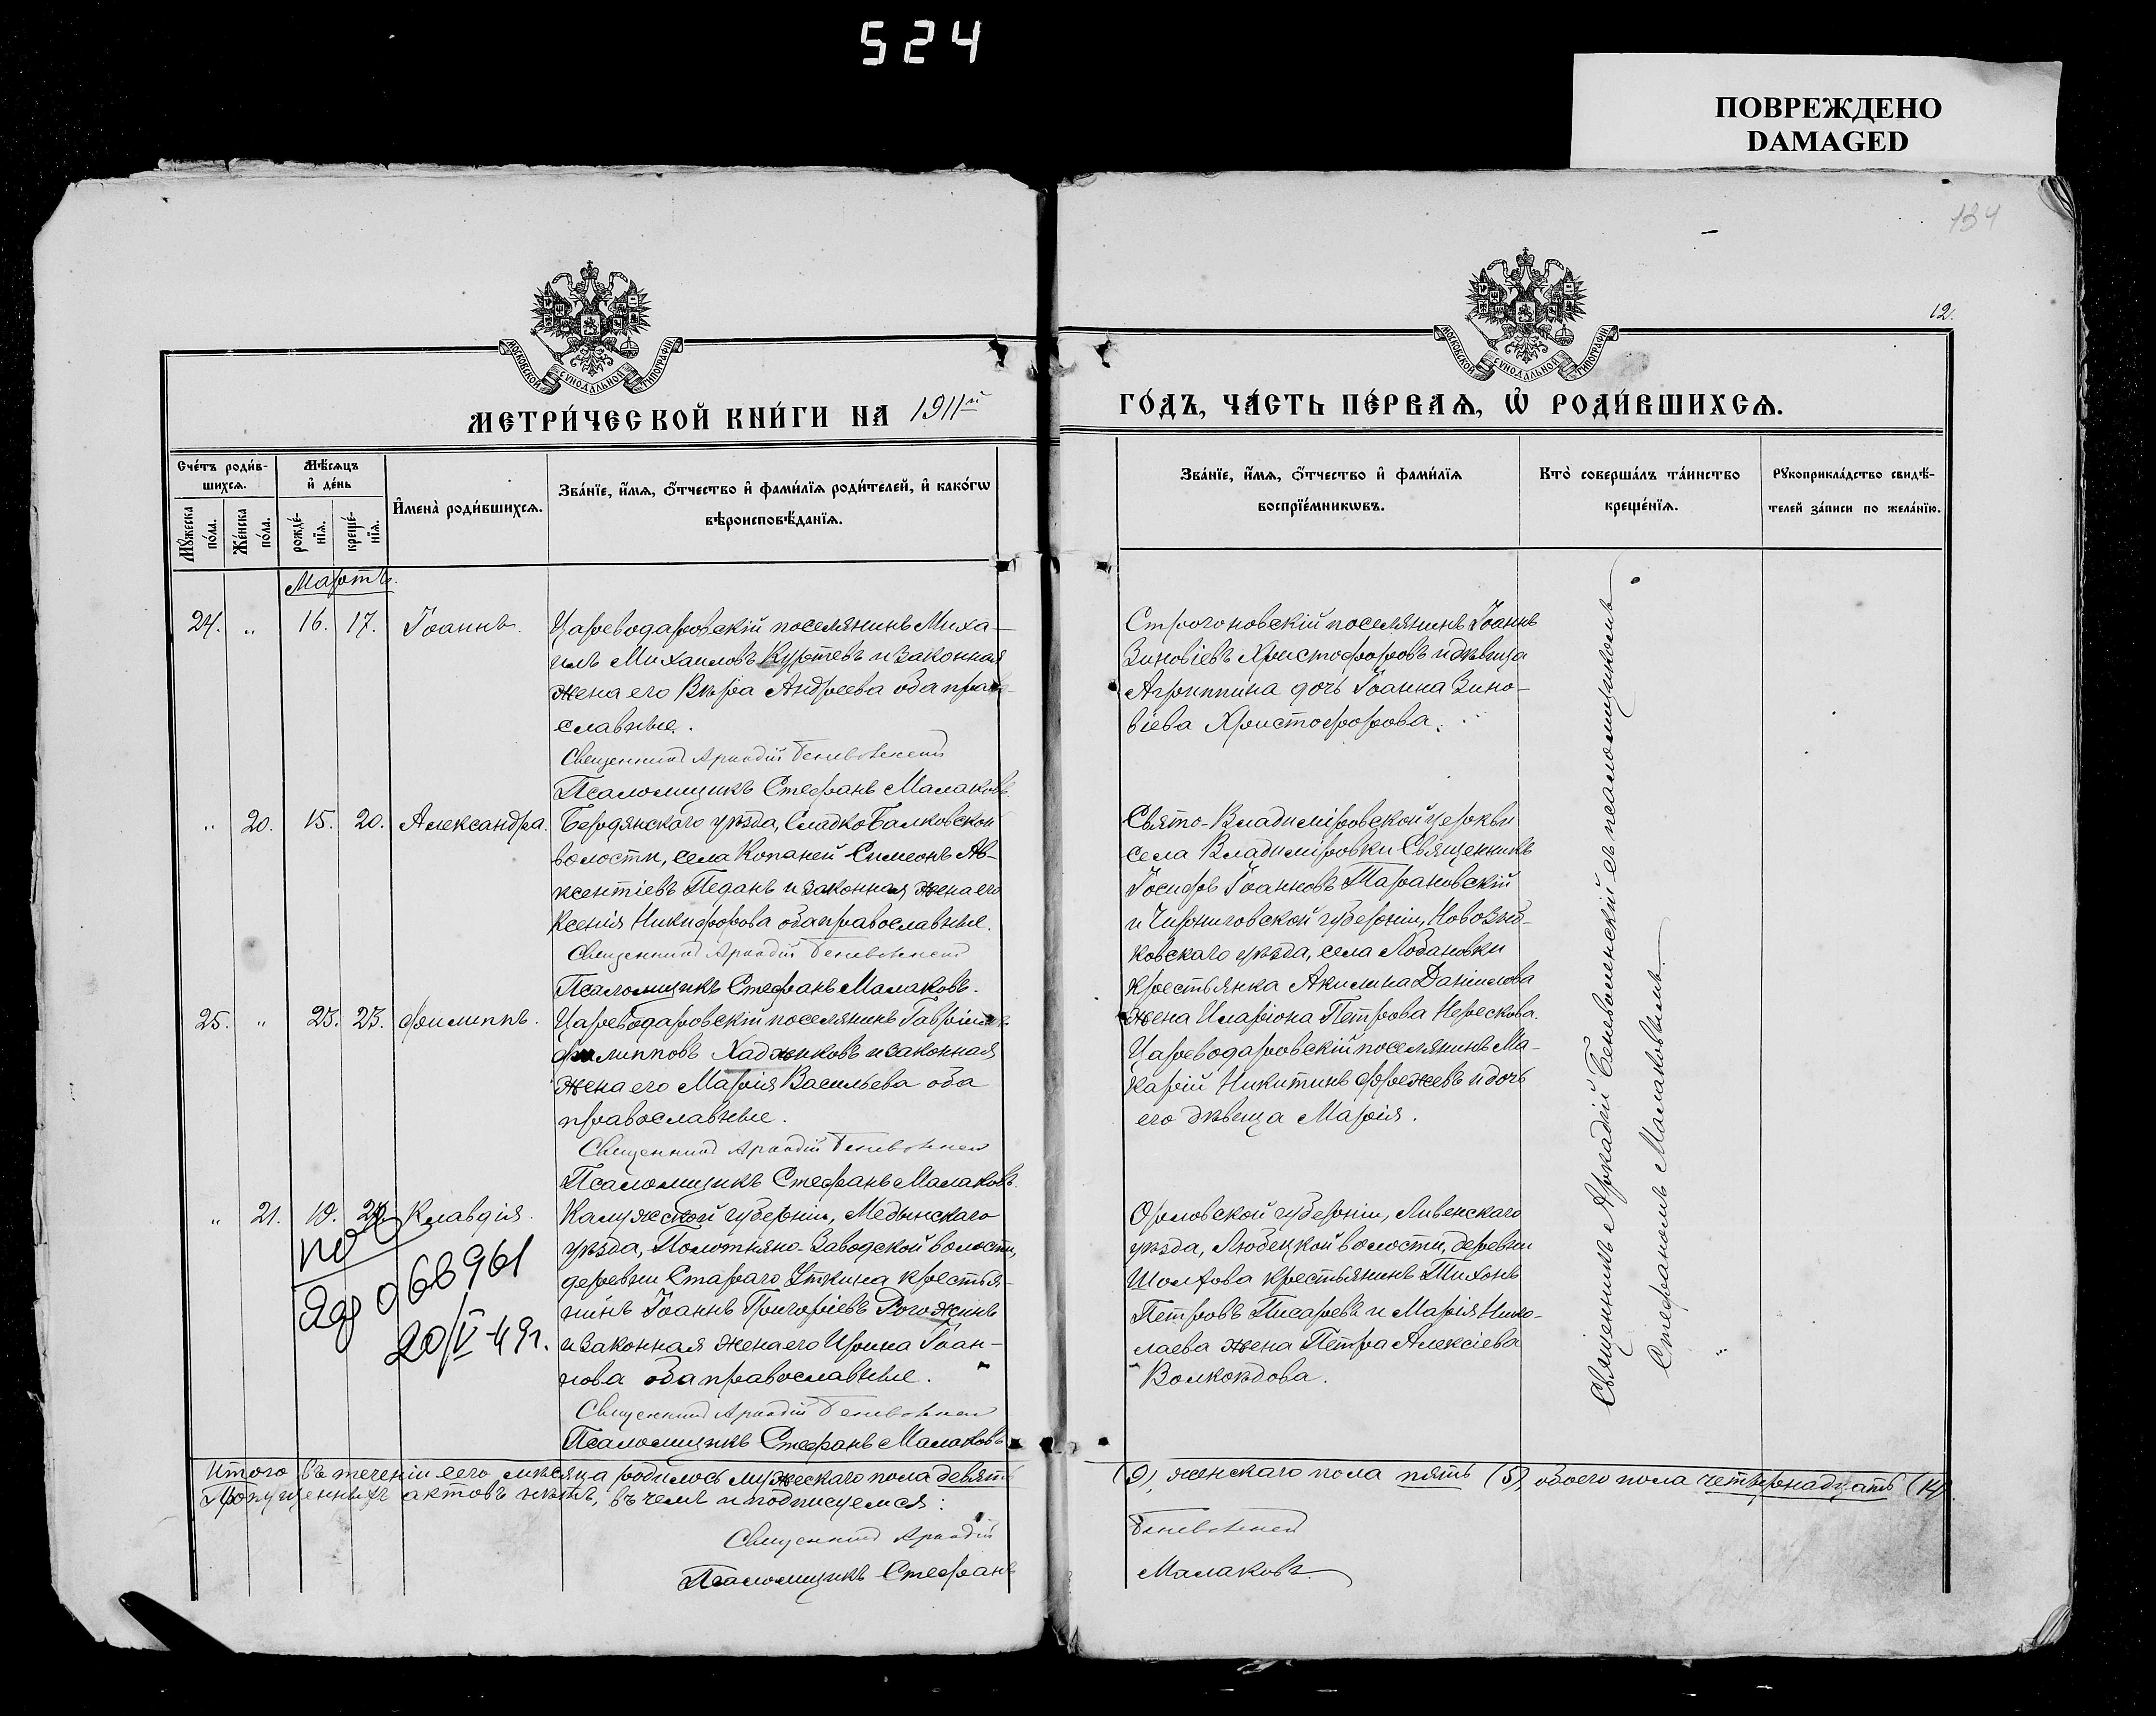 524
ПОВРЕЖДЕНО
DAMAGED
134
12.
МОСКОВСКОЙ СѴНОДАЛЬНОЙ ТИПОГРАФІИ
МОСКОВСКОЙ СѴНОДАЛЬНОЙ ТИПОГРАФІИ
МЕТРИ́ЧЕСКОЙ КНИ́ГИ НА 1911й
ГО́ДЪ, ЧА́СТЬ ПЕ́РВАѦ, Ѡ҆ РОДИ́ВШИХСѦ.
Сче́тъ роди́в-
шихсѧ.
Мѣ́сѧцъ
и҆ де́нь
Мꙋ́жеска
по́ла.
Же́нска
по́ла.
рожде́-
нїѧ.
креще́-
нїѧ.
И҆мена̀ роди́вшихсѧ.
Зва́нїе, и҆́мѧ, ѻ҆́тчество и҆ фами́лїѧ роди́телей, и҆ како́гѡ
вѣроисповѣ́данїѧ.
Зва́нїе, и҆́мѧ, ѻ҆́тчество и҆ фами́лїѧ
воспрїе́мникѡвъ.
Кто̀ соверша́лъ та́инство
креще́нїѧ.
Рꙋкоприкла́дство свидѣ́-
телей за́писи по жела́нїю.
Мартъ.
24. " 16. 17. Іоаннъ.
Цареводаровскій поселянинъ Миха-
илъ Михаиловъ Куртевъ и законная
жена его Вѣра Андреева оба право-
славные.
Священникъ Аркадій Беневоленскій
Псаломщикъ Стефанъ Малаковъ.
Строгоновскій поселянинъ Іоаннъ
Зиновіевъ Христофоровъ и дѣвица
Агриппина дочь Іоанна Зино-
віева Христофорова.
" 20. 15. 20. Александра.
Бердянскаго уѣзда, СладкоБалковской
волости, села Копаней Симеонъ Ав-
ксентіевъ Педанъ и законная жена его
Ксенія Никифорова оба православные.
Священникъ Аркадій Беневоленскій
Псаломщикъ Стефанъ Малаковъ.
Свято-Владиміровской церкви
села Владиміровки Священникъ
Іосифъ Іоанновъ Тарановскій
и Черниговской губерніи, Новозыб-
ковскаго уѣзда, села Лобановки
крестьянка Акилина Даніилова
жена Иларіона Петрова Нерескова.
25. " 23. 23. Филиппъ.
Цареводаровскій поселянинъ Гавріилъ
Филипповъ Хаджиковъ и законная
жена его Марія Васильева оба
православные.
Священникъ Аркадій Беневоленскій
Псаломщикъ Стефанъ Малаковъ.
Цареводаровскій поселянинъ Ма-
карій Никитинъ Фрежевъ и дочь
его дѣвица Марія.
" 21. 19. Клавдія.
Калужеской губерніи, Медынскаго
уѣзда, Полотняно-Заводской волости,
деревни Стараго Уткина крестья-
нинъ Іоаннъ Григоріевъ Рогожинъ
и законная жена его Ирина Іоан-
нова оба православные.
Священникъ Аркадій Беневоленскій
Псаломщикъ Стефанъ Малаковъ
Орловской губерніи, Ливенскаго
уѣзда, Любецкой волости, деревни
крестьянинъ Тихонъ
Петровъ Писаревъ и Марія Нико-
лаева жена Петра Алексіева
068961
20/V-49г.
Священникъ Аркадій Беневоленскій съ псаломщикомъ
Стефаномъ Малаковымъ.
Итого въ теченіи сего мѣсяца родилось мужескаго пола девять (9), женскаго пола пять (5), обоего пола четырнадцать (14).
Пропущенныхъ актовъ нѣтъ, въ чемъ и подписуемся:
Священникъ Аркадій Беневоленскій
Псаломщикъ Стефанъ Малаковъ.